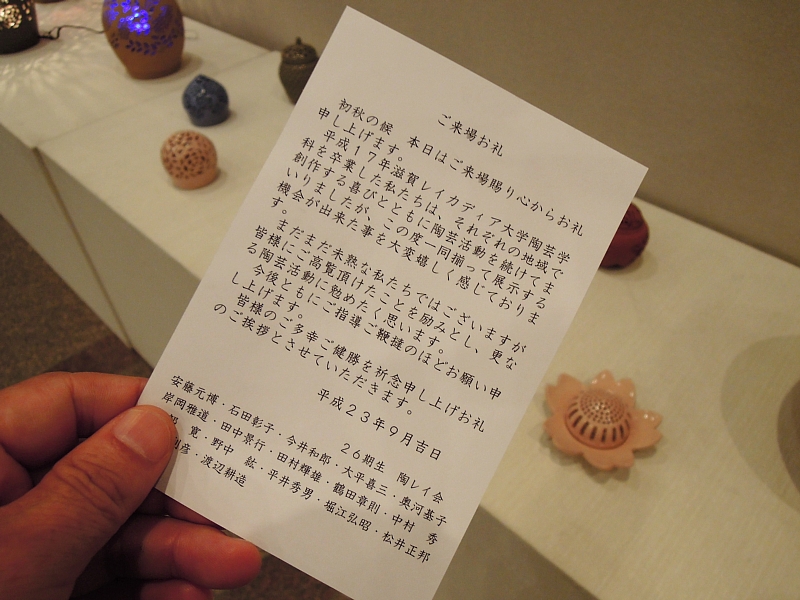 ご来場お礼
初秋の候　本日はご来場賜り心からお礼
申し上げます。
平成１７年滋賀レイカディア大学陶芸学
科を卒業した私たちは、それぞれの地域で
創作する喜びとともに陶芸活動を続けてま
いりましたが、この度一同揃って展示する
機会が出来た事を大変嬉しく感じておりま
す。
まだまだ未熟な私たちではございますが
皆様にご高覧頂けたことを励みとし、更な
る陶芸活動に勉めたく思います。
今後ともにご指導ご鞭撻のほどお願い申
し上げます。
皆様のご多幸ご健勝を祈念申し上げお礼
のご挨拶とさせていただきます。
平成２３年９月吉日
２６期生　陶レイ会
安藤元博・石田彰子・今井和郎・大平喜三・奥河基子
岸岡雅道・田中景行・田村輝雄・鶴田章則・中村　秀
寛・野中　紘・平井秀男・堀江弘昭・松井正邦
彦・渡辺耕造